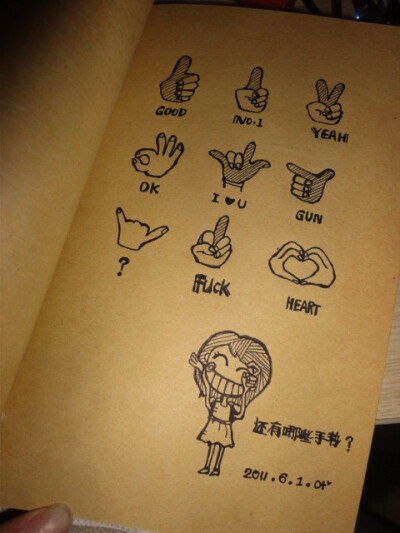 GOOD NO.1 YEAH
OK I ♥ U GUN
? FUCK HEART
还有哪些手势?
2011.6.1.